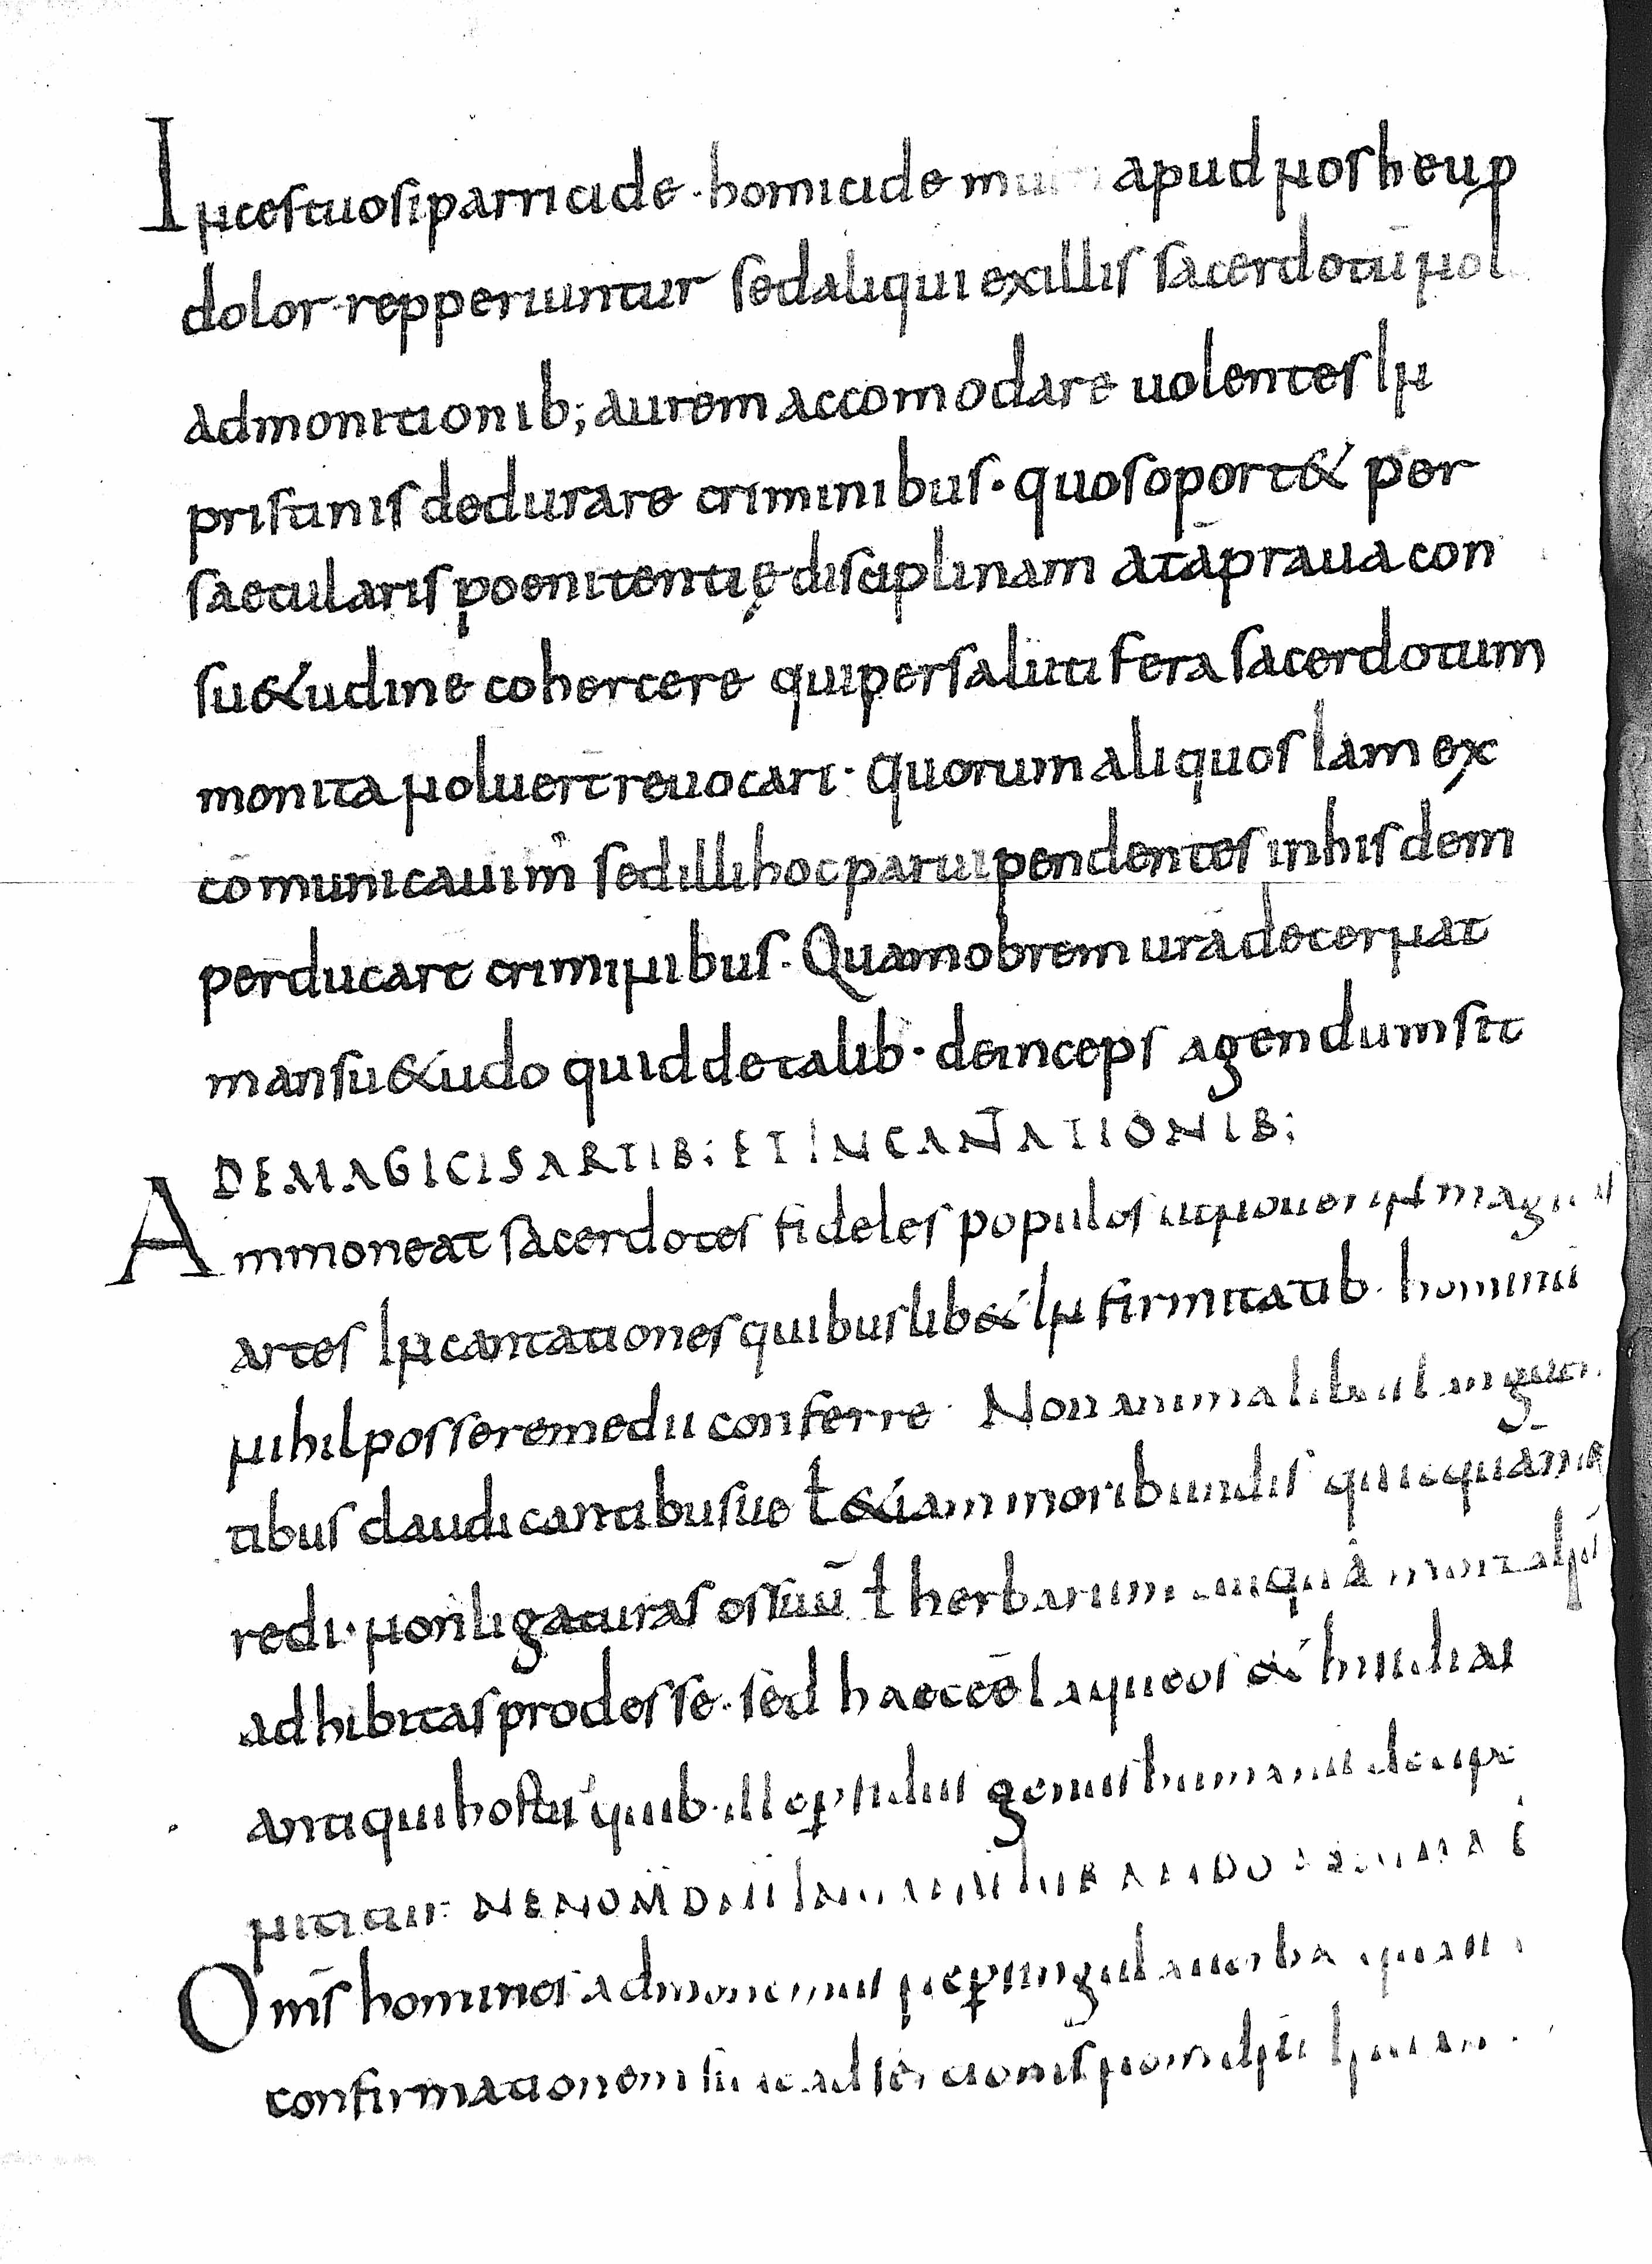 Incestuosi parricide · homicide multi apud nos heu p
dolor · repperiuntur sed aliqui ex illis sacerdotū nol
admonitionib; aurem accomodare uolentes In
pristinis dedurare criminibus · quos oport& per
saecularis poenitentię disciplinam a tā praua con
su&udine cohercere qui per salutifera sacerdotum
monita noluert̄ reuocari · Quorum aliquos Iam ex
cōmunicauim' sed illi hoc paruipendentes in hisdem
perducart criminibus · Quamobrem urā decernat
mansu&udo quid de talib · deinceps agendum sit
DE MAGICIS ARTIB; ET INCANTATIONIB;
Ammoneat sacerdotes fideles populos ut nouerint
artes Incantationes quibuslib& Infirmitatib · hominū
nihil posse remedii conferre · Non animalibus
tibus claudicantibusue ł &iam moribundis quicquā
redi · non ligaturas ossuū ł herbarum
adhibitas prodesse · sed haec eē laqueos &
antiqui hostis quib · ille genus humanū
nititur · NE NOM̄
Om̄s homines admonemus
confirmationem